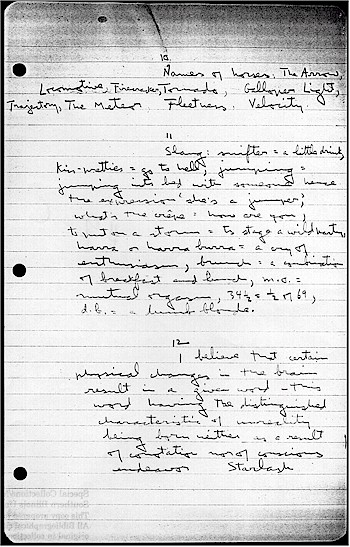 10
Names of horses. The Arrow,
Locomotive, Firewater, Tornado, Gallover Light,
Trajectory, The Meteor Fleetness. Velocity.
11
Slang: snifter = a little drink,
go to hell, jumping =
jumping into bed with someone hence
the expression "she's a jumper,
what's the crêpe = how are you,
to put on a storm = to stage a wild party,
harra or harra burra = a cry of
enthusiasm, brunch = a combination
of breakfast and lunch, m.o. =
mutual orgasm, 34½ = ½ of 69,
d.b. = a dumb blonde.
12
I believe that certain
physical changes in the brain
result in a given word – this
word having the distinguished
characteristic of unreality
being born neither as a result
of connotation nor of conscious
endeavor Starlash
Special Collections
Southern Illinois
This copy
All